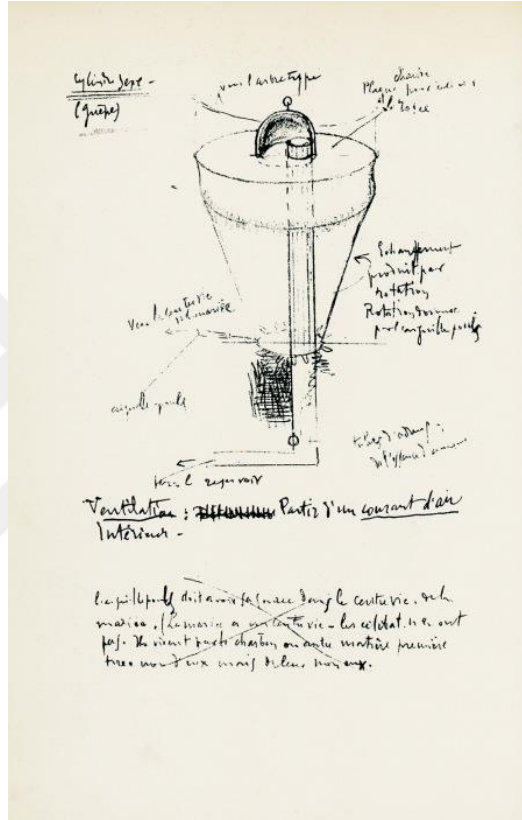 Cylindre sexe -
(guêpe)
vers l'arbre type
Plaque pour
Echauffement
produit par
rotation
Rotation donnée
par l'aiguille pouls
Vers le centre vie
de la mariée
aiguille-pouls
tubes d'adduct.
de l'essence d'amour
vers le reservoir
Ventilation : Partir d'un courant d'air
Intérieur -
L'aiguille pouls doit avoir sa source dans le centre vie. de la
mariée. (La mariée a un centre vie - les célibat. n'en ont
pas. Ils vivent par le charbon ou autre matière première
tirée non d'eux mais de leur non eux.